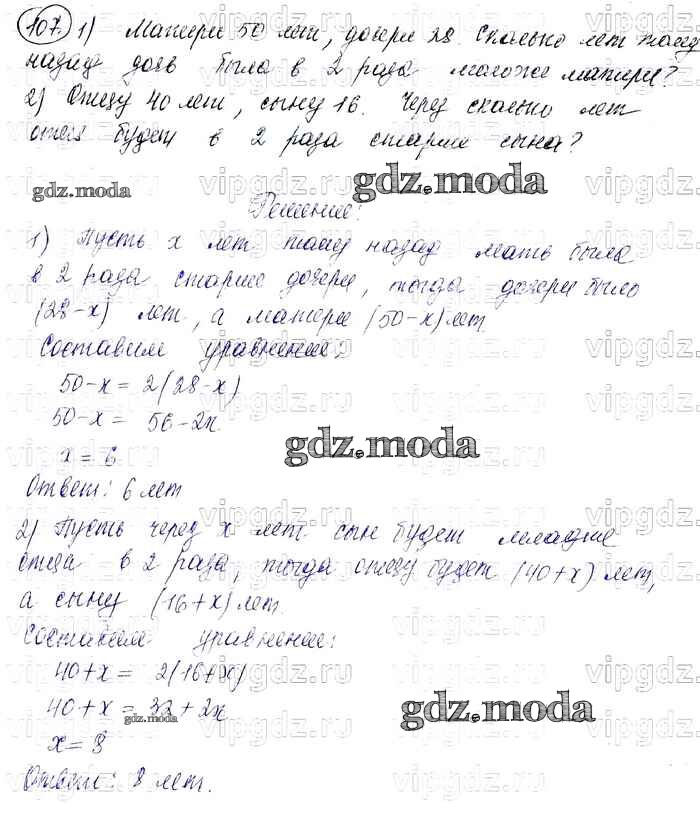 107. 1) Матери 50 лет, дочери 28. Сколько лет тому
назад дочь была в 2 раза моложе матери?
2) Отцу 40 лет, сыну 16. Через сколько лет
отец будет в 2 раза старше сына?
gdz.moda
gdz.moda
Решение:
1) Пусть x лет тому назад мать была
в 2 раза старше дочери, тогда дочери было
(28-x) лет, а матери (50-x) лет
Составим уравнение:
50-x = 2(28-x)
50-x = 56-2x
x = 6
gdz.moda
Ответ: 6 лет
2) Пусть через x лет сын будет младше
отца в 2 раза, тогда отцу будет (40+x) лет,
а сыну (16+x) лет.
Составим уравнение:
40+x = 2(16+x)
40+x = 32+2x
gdz.moda
gdz.moda
x = 8
Ответ: 8 лет.
vipgdz.ru